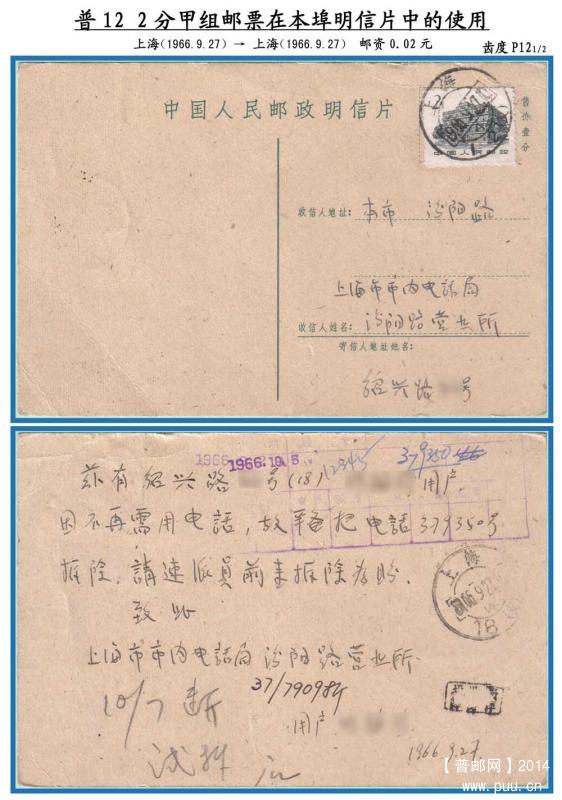 普12 2分甲组邮票在本埠明信片中的使用
上海(1966.9.27) → 上海(1966.9.27) 邮资0.02元
齿度 P12 1/2
中国人民邮政明信片
上海
售价壹分
中国人民邮政
收信人地址: 本市 汾阳路
上海市市内电話局
收信人姓名: 汾阳路营业所
寄信人地址姓名:
绍兴路 号
1966.10.5
12345
379350
兹有绍兴路 号(18) 用户
因不再需用电話,故 把电話379350号
拆除,請速派員前来拆除为盼.
致此
上海市市内电話局汾阳路营业所
37/79098
用户
10/7
1966.9.27
上海
1966.9.27
【普邮网】2014
www.puu.cn